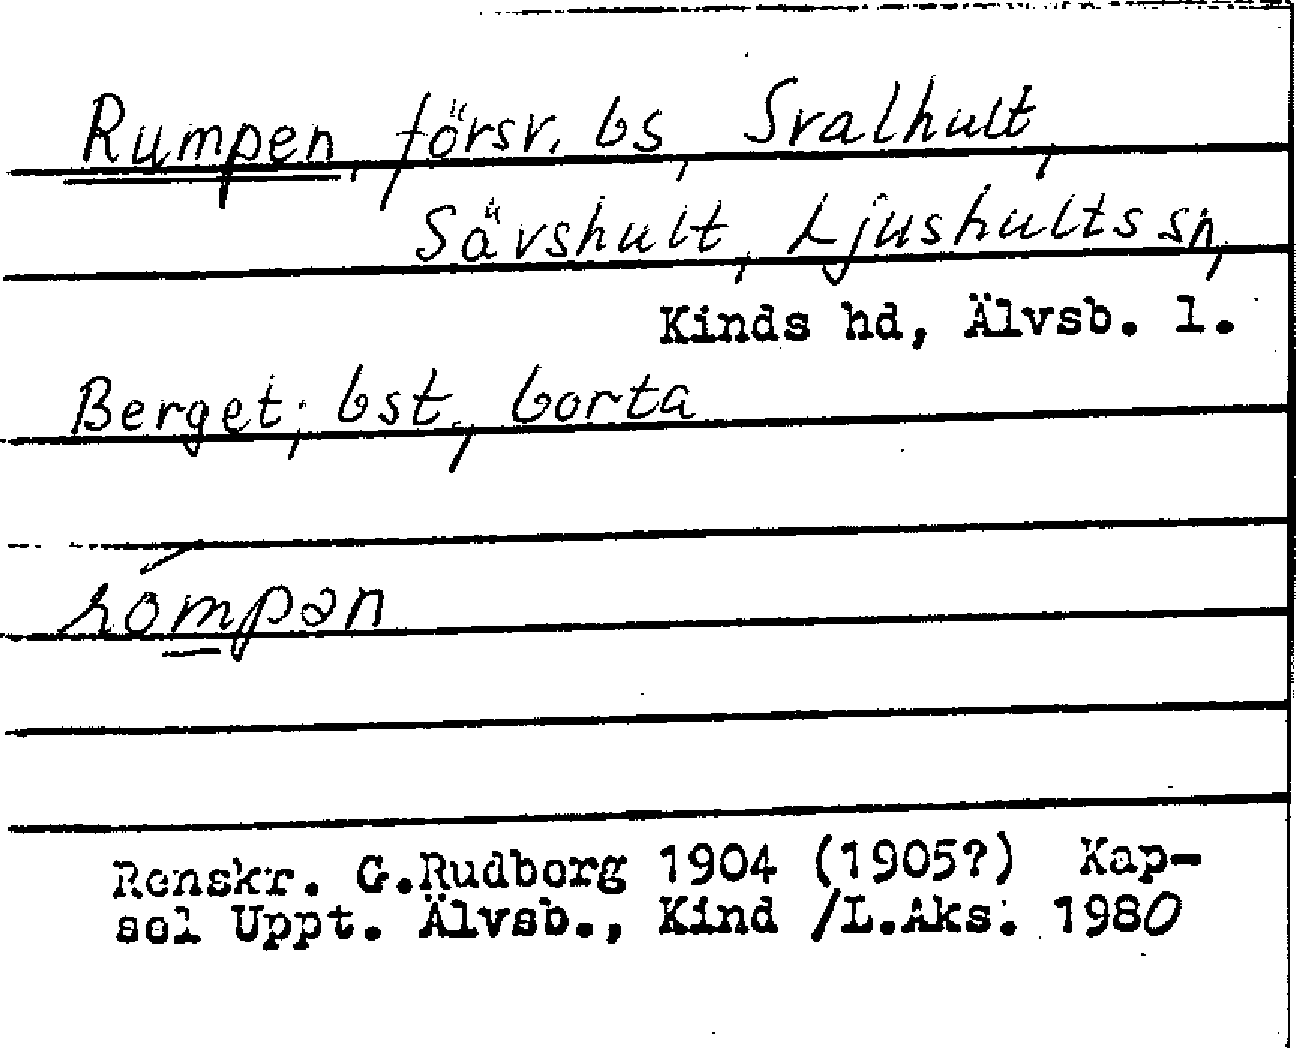 Rumpen, försv. bs, Svalhult,
Sävshult, Ljushults sn,
Kinds hd, Älvsb. l.
Berget; bst., borta
ròmpən
Renskr. G.Rudborg 1904 (1905?) Kap-
sel Uppt. Älvsb., Kind /L.Aks. 1980